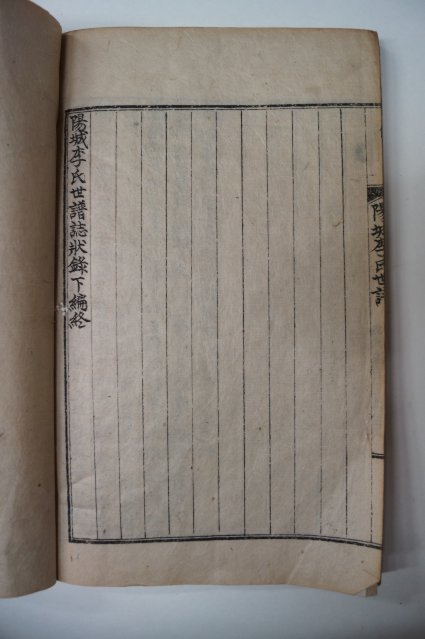 陽城李氏世譜
陽城李氏世譜誌狀錄下編終